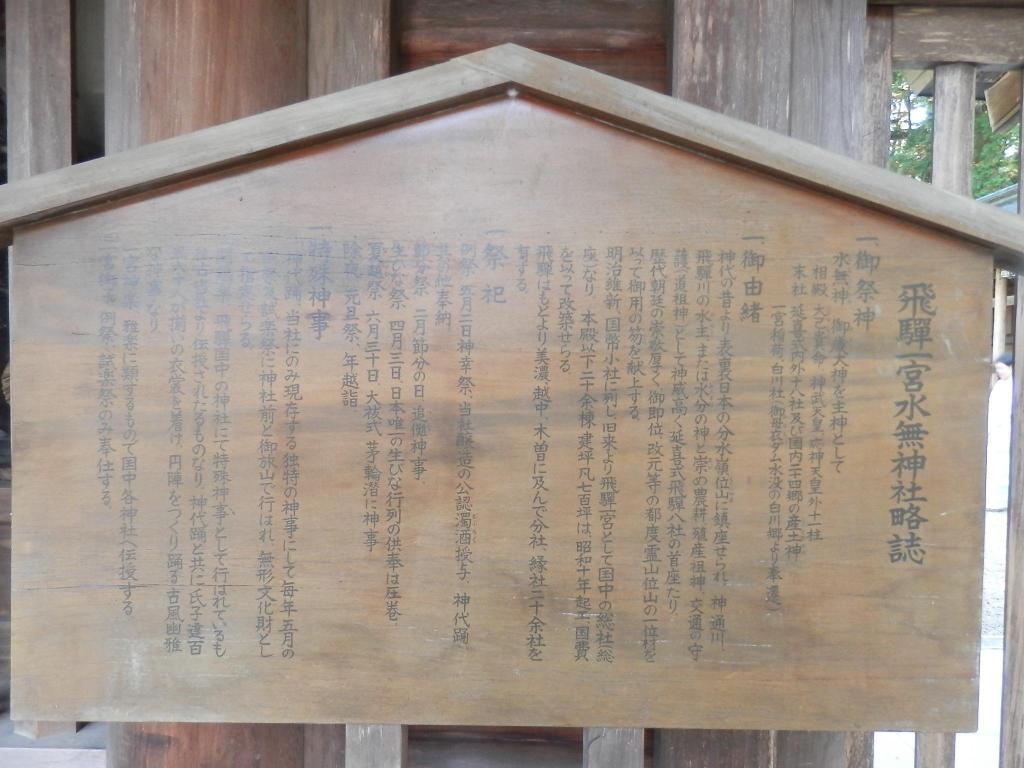 飛騨一宮水無神社略誌
一、御祭神
水無神 御歳大神を主神として
相殿 大己貴命、神武天皇、応神天皇外十一柱
末社 延喜式内外十八社及び国内二十四郷の産土神
一宮稲荷、白川社(御母衣ダム水没の白川郷より奉遷)
一、御由緒
神代の昔より表裏日本の分水嶺位山に鎮座せられ、神通川、
飛騨川の水主、または水分の神と崇め農耕、殖産祖神、交通の守
護(道祖神)として神威高く延喜式飛騨八社の首座たり。
歴代朝廷の崇敬厚く、御即位、改元等の都度霊山位山の一位材を
以って御用の笏を献上する。
明治維新、国幣小社に列し旧来より飛騨一宮として国中の総社、総
座なり、本殿以下二十余棟、建坪凡七百坪は、昭和十年起工国費
を以って改築せらる。
飛騨はもとより美濃、越中、木曽に及んで分社、縁社二十余社を
有する。
一、祭祀
例祭 五月二日神幸祭、当社醸造の公認濁酒授与、神代踊、
奉納
節分祭 二月節分の日 追儺神事、
生びな祭 四月三日 日本唯一の生びな行列の供奉は圧巻
夏越祭 六月三十日 大祓式、茅輪潜に神事
除夜、元旦祭、年越詣
一、特殊神事
神代踊 当社にのみ現存する独特の神事にして毎年五月の
試楽祭に神社前と御旅山で行はれ、無形文化財とし
飛騨国中の神社にて特殊神事として行はれているも
より伝授されたるものなり、神代踊と共に氏子達百
人が揃いの衣裳を着け、円陣をつくり踊る古風幽雅
なり
雅楽に類するもので国中各神社へ伝授する。
例祭、試楽祭のみ奉仕する。